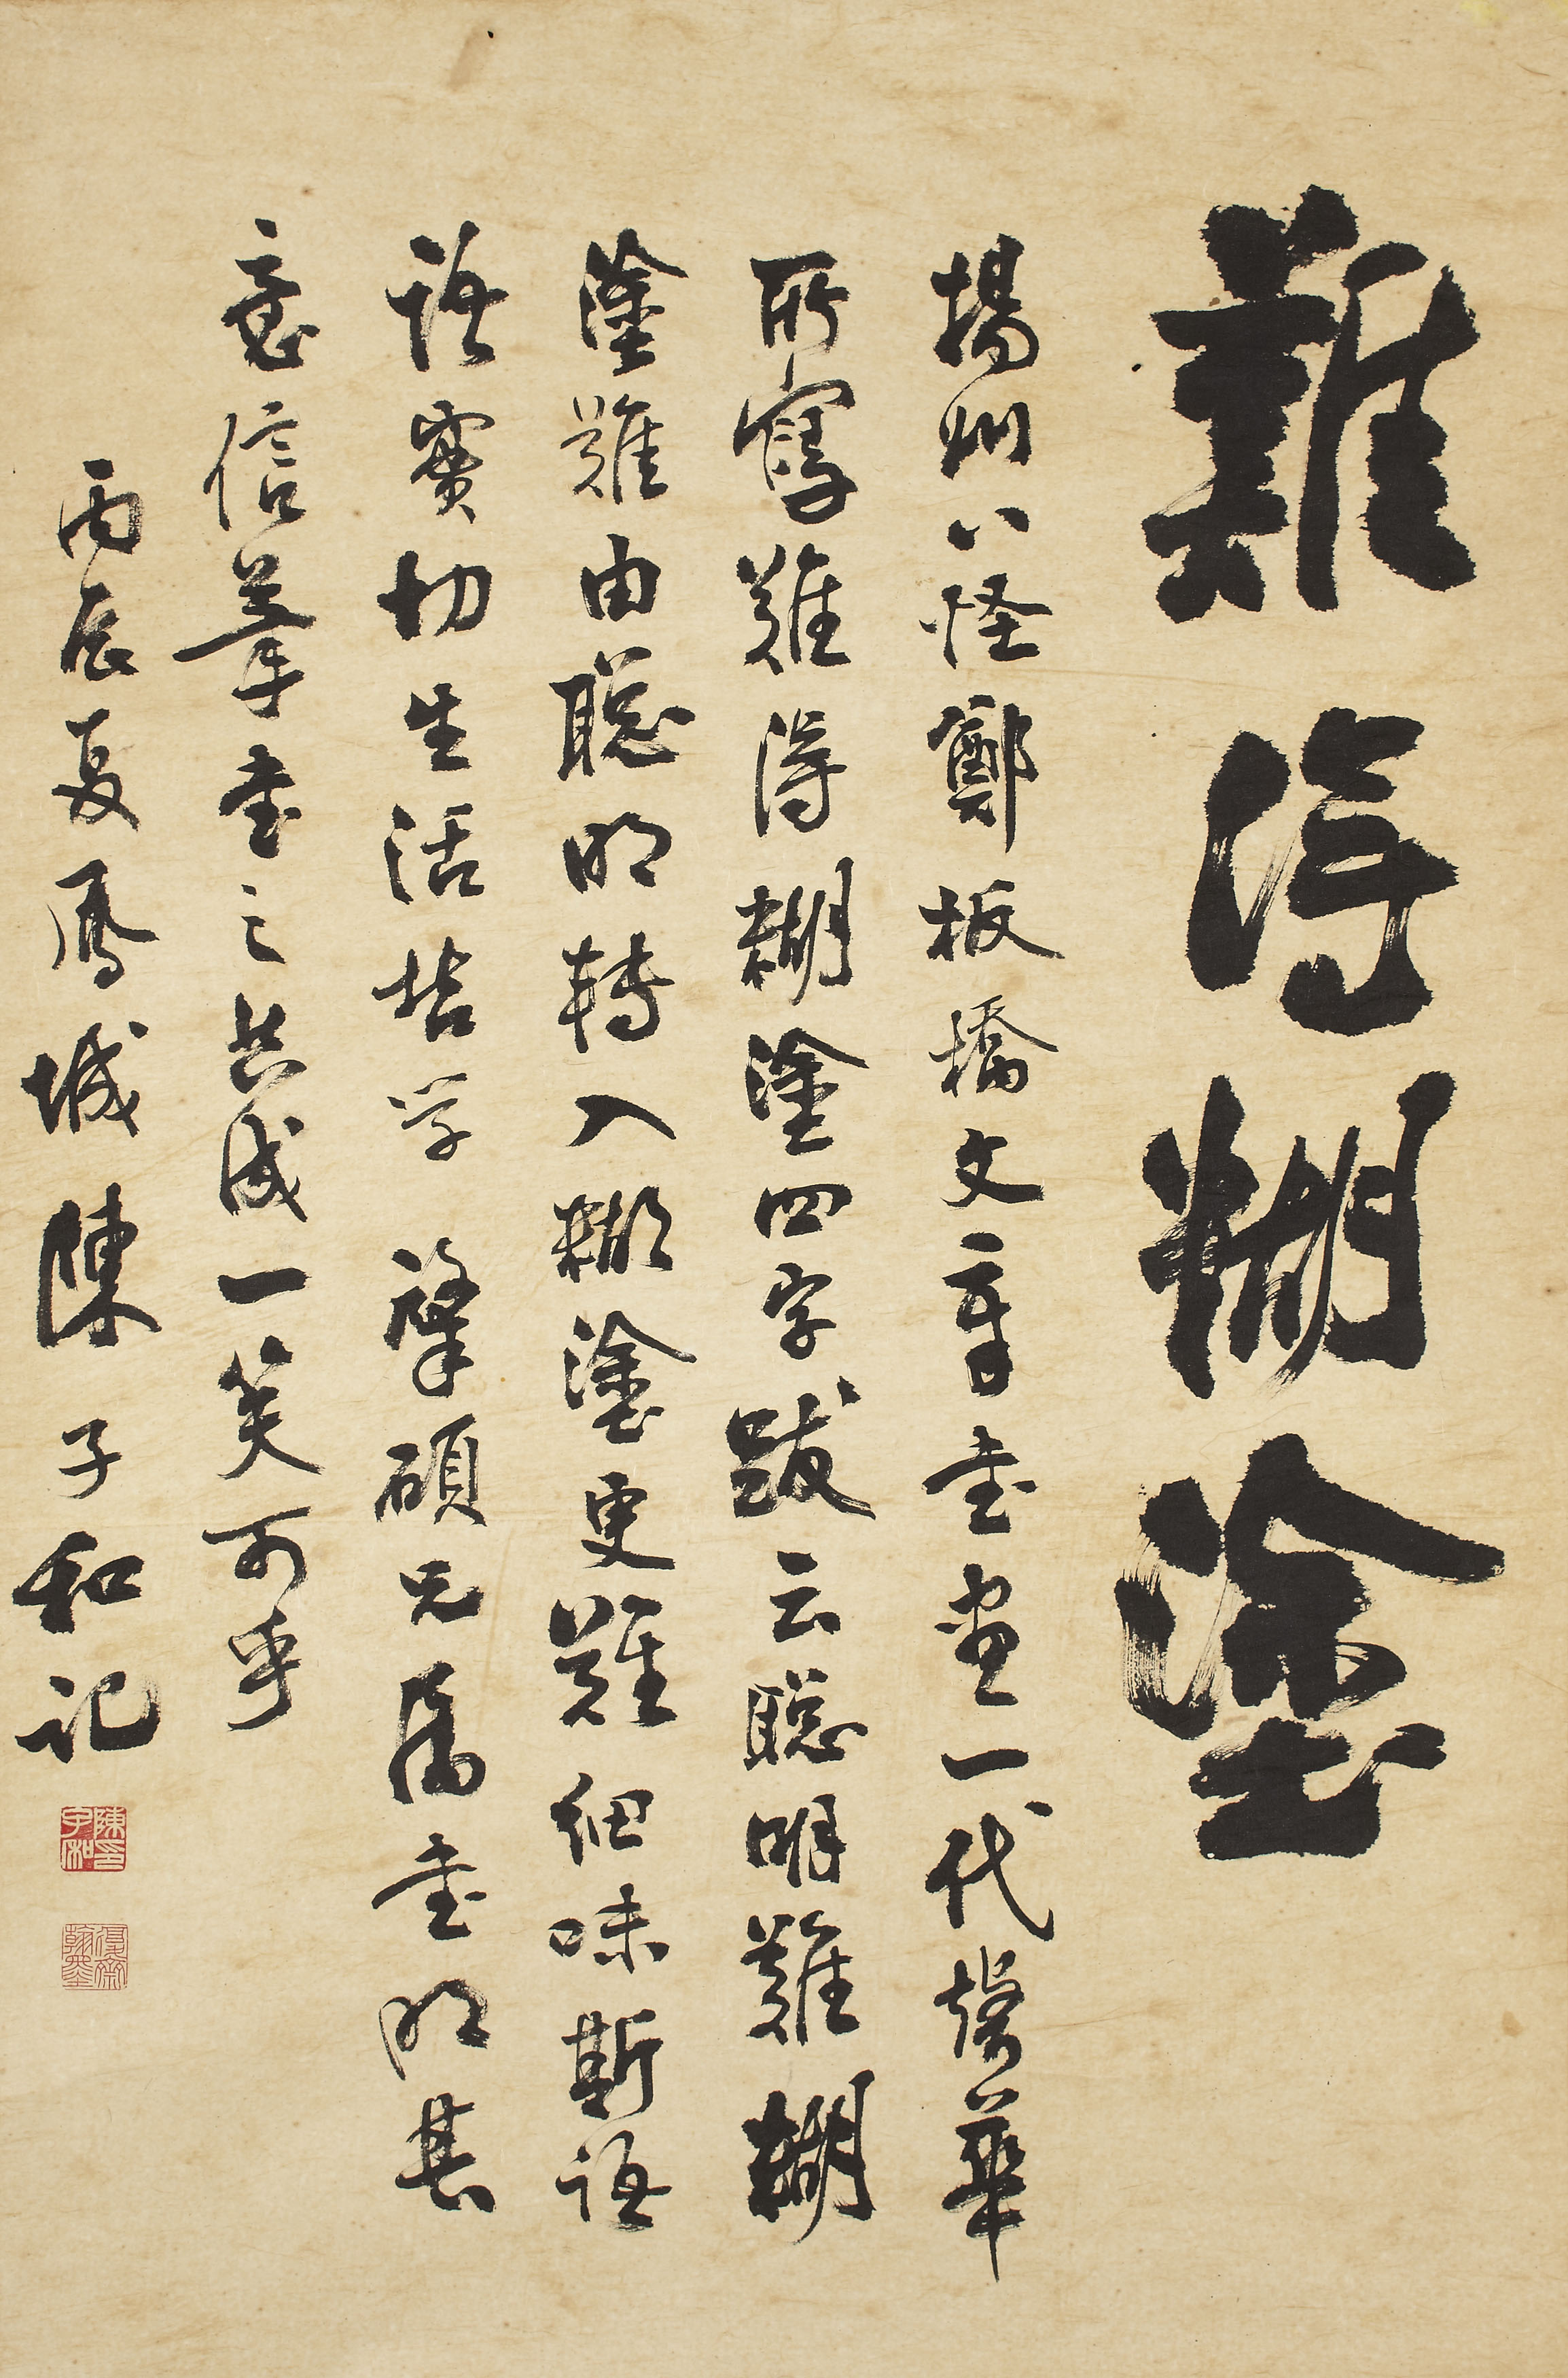 難得糊塗
揚州八怪鄭板橋文章書畫一代華
所寫難得糊塗四字跋云聰明難糊
塗難由聰明轉入糊塗更難細味斯語
語實切生活哲學肇碩兄屬書明其
意信筆書之共成一笑可乎
丙辰夏鳳城陳子和記
陳印子和
齋翰墨